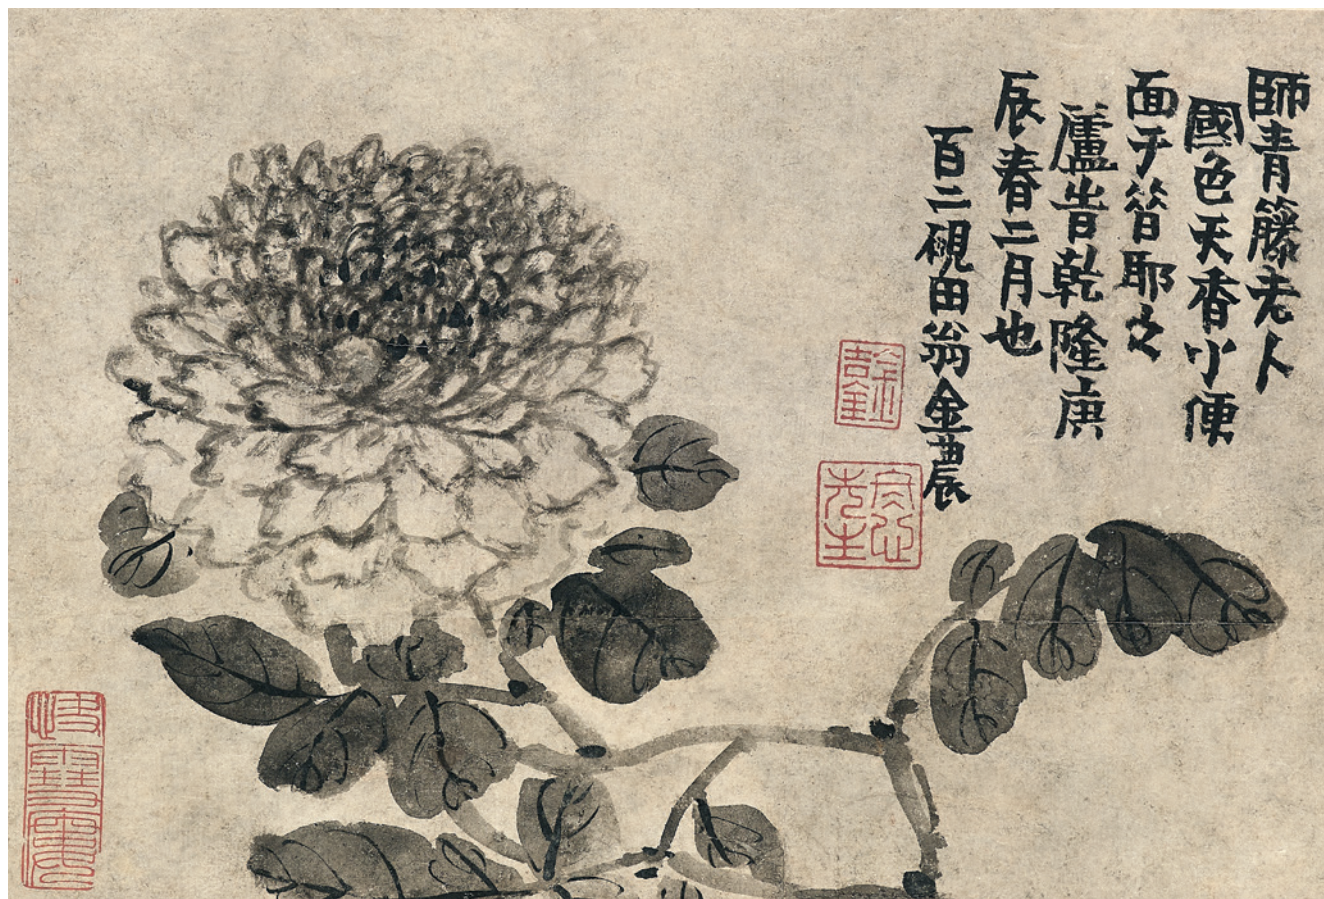 師青籐老人
國色天香小便
面于㫺耶之
廬旹乾隆庚
辰春二月也
百二硯田翁金農
冬心先生